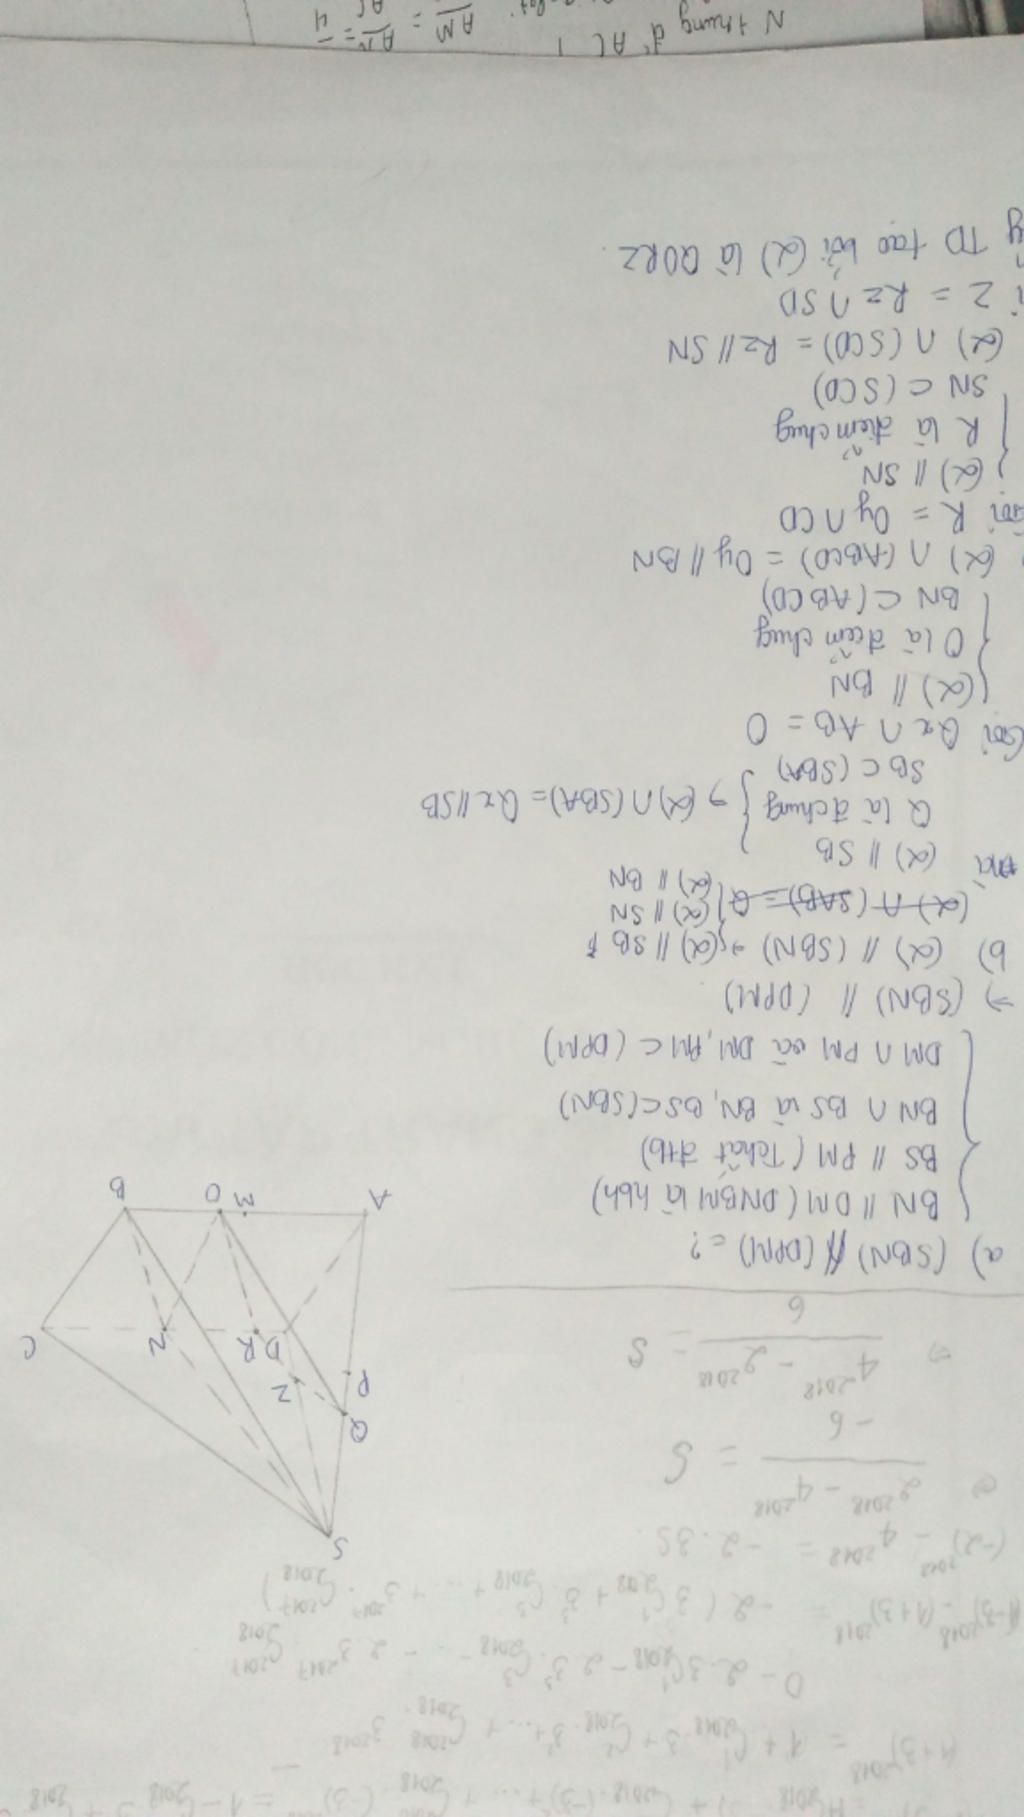 (1+3)^2018 = 1 + C^1_2018 . 3 + C^2_2018 . 3^2 + ... + C^2018_2018 . 3^2018
0 - 2.3C^1_2018 - 2.3^3.C^3_2018 - ... - 2.3^2017.C^2017_2018
(1-3)^2018 - (1+3)^2018 = -2(3C^1_2018 + 3^3.C^3_2018 + ... + 3^2017.C^2017_2018)
(-2)^2018 - 4^2018 = -2.3S.
⇔ (2^2018 - 4^2018)/(-6) = S
⇒ (4^2018 - 2^2018)/6 = S
a) (SBN) // (DPM) = ?
BN // DM (DNBM là hbh)
BS // PM (Tchất đtb)
BN ∩ BS và BN, BS ⊂ (SBN)
DM ∩ PM và DM, PM ⊂ (DPM)
⇒ (SBN) // (DPM)
b) (α) // (SBN) ⇒ (α) // SB
(α) ∩ (SAB) = Q (α) // SN
(α) // BN
mà (α) // SB
Q là đ chung → (α) ∩ (SBA) = Qx // SB
SB ⊂ (SBA)
Gọi Qx ∩ AB = O
(α) // BN
O là điểm chug
BN ⊂ (ABCD)
(α) ∩ (ABCD) = Oy // BN
Gọi R = Oy ∩ CD
(α) // SN
R là điểm chug
SN ⊂ (SCD)
(α) ∩ (SCD) = Rz // SN
Z = Rz ∩ SD
TD tạo bởi (α) là QORZ.
S
Q
P
Z
D R
N
C
A
M
O
B
N trung đ' AC